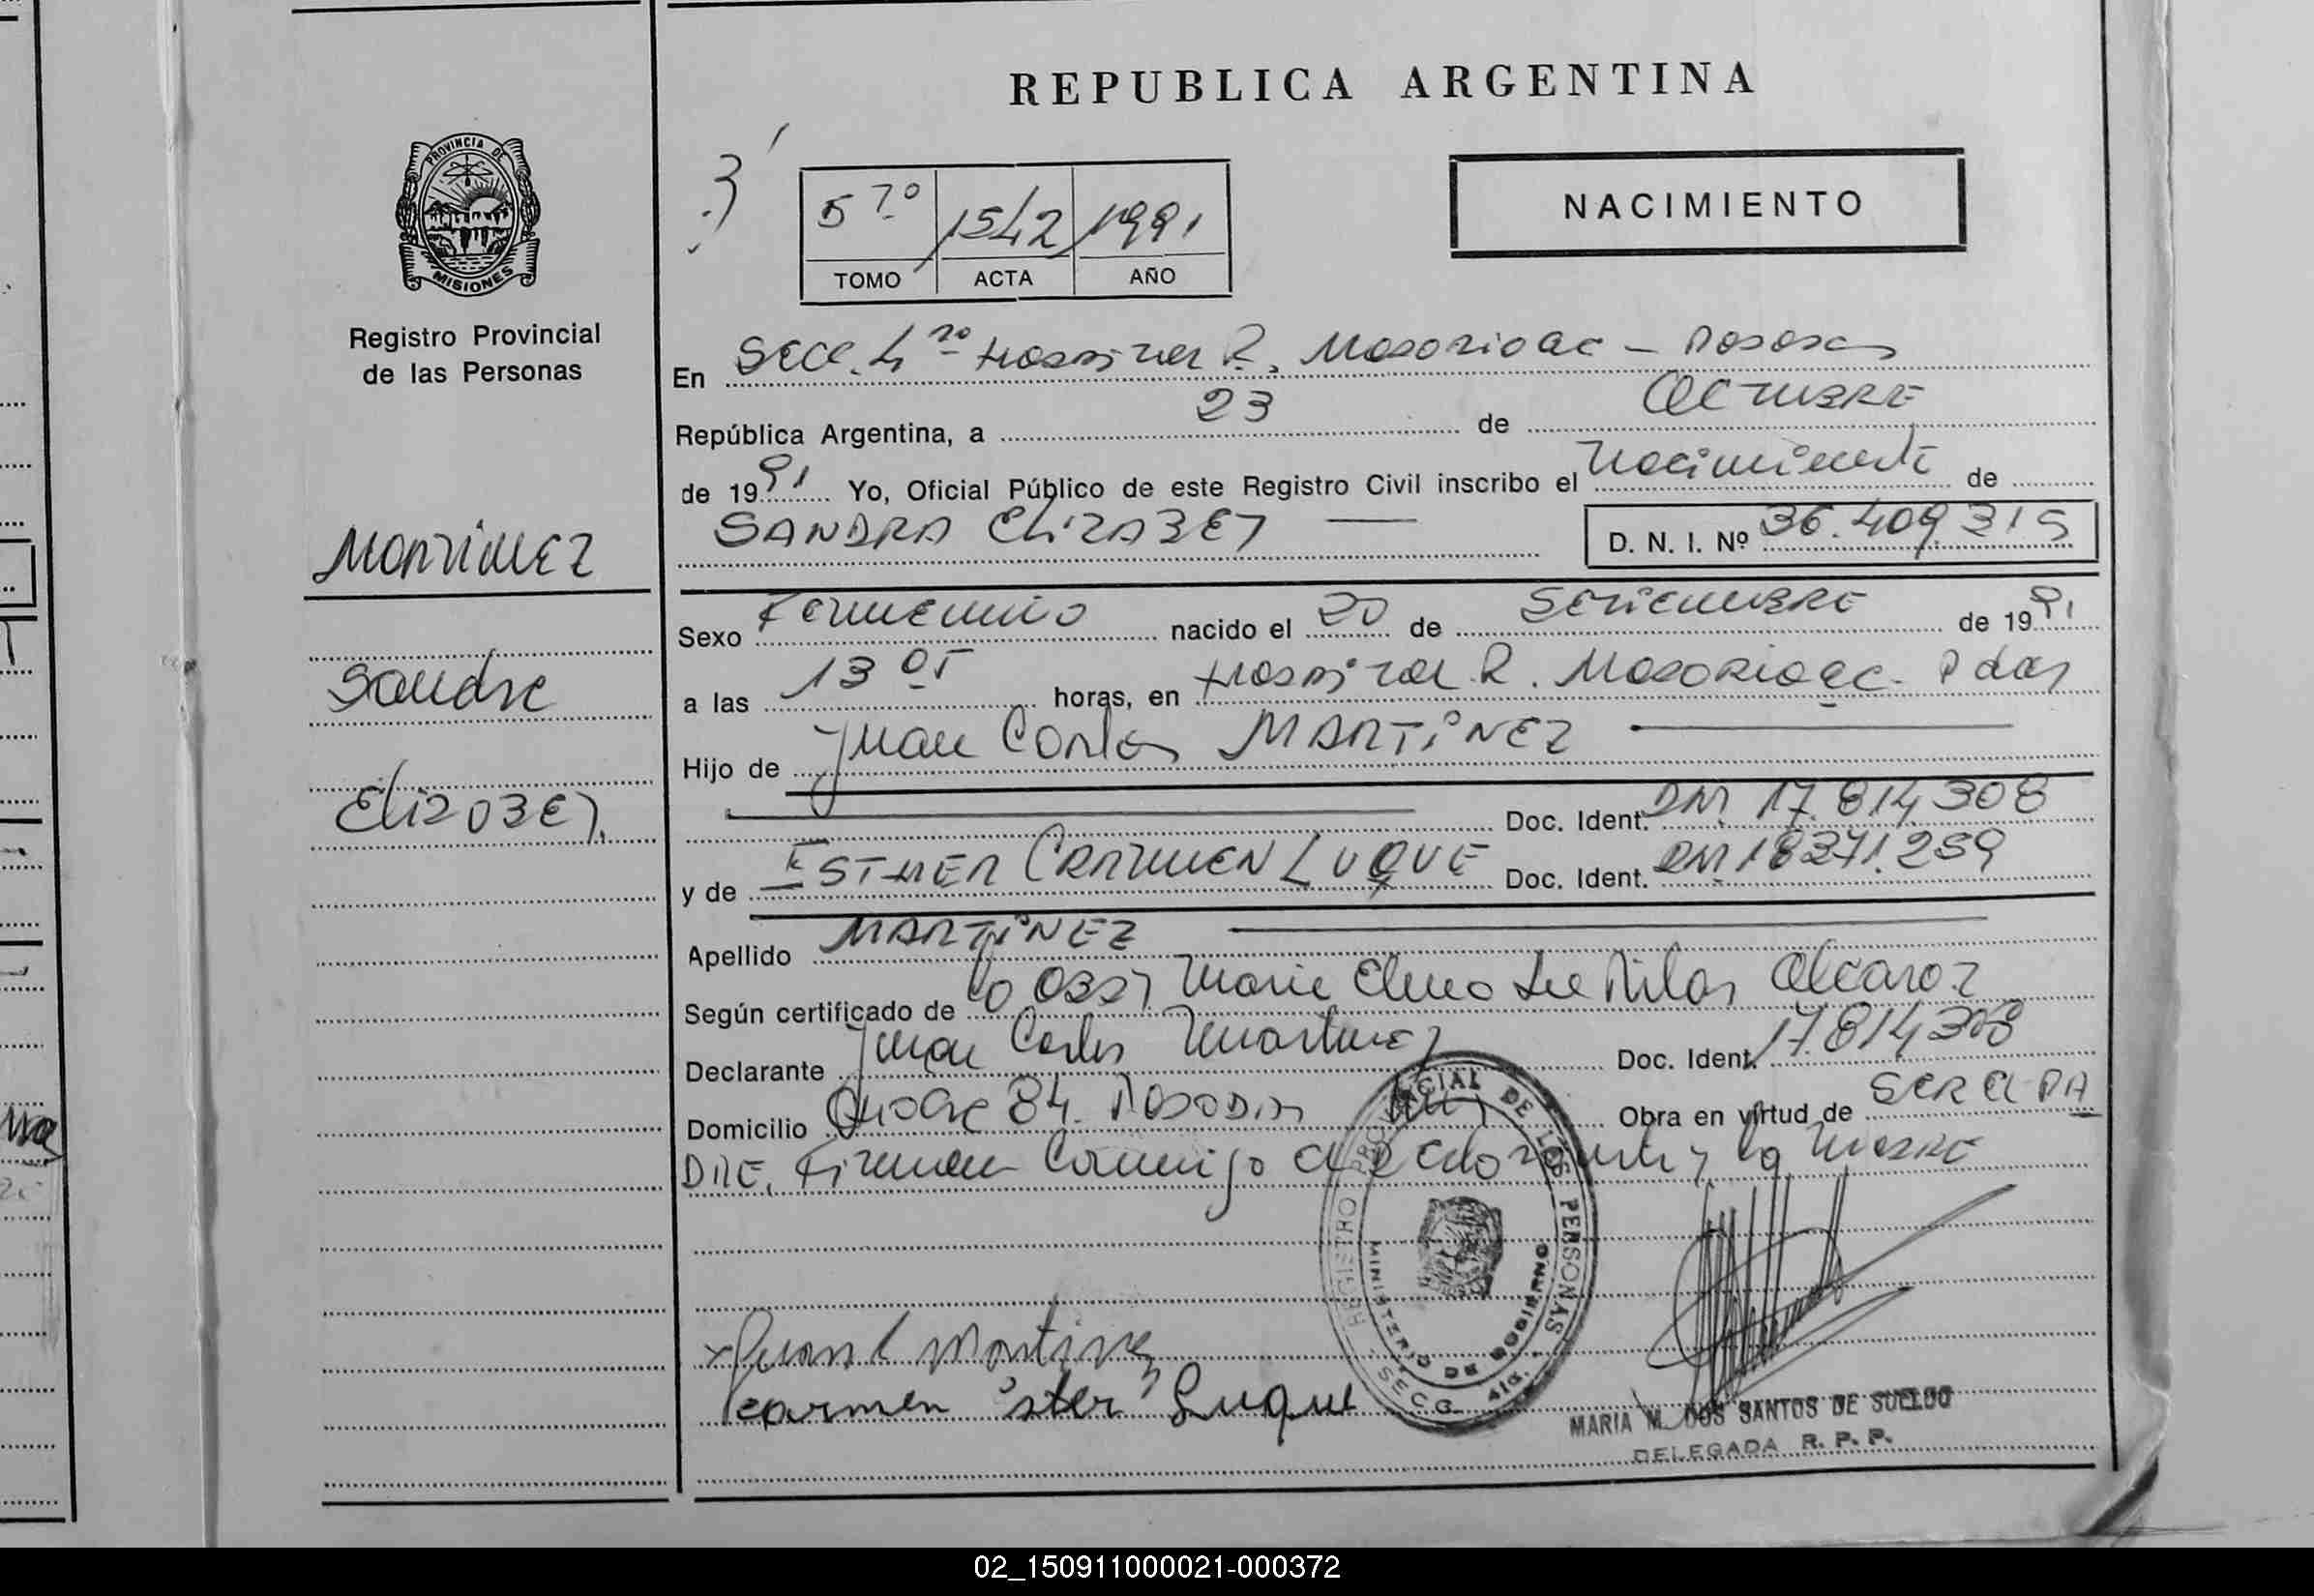 REPUBLICA ARGENTINA
PROVINCIA DE
MISIONES
Registro Provincial
de las Personas
5 7º 1542 1991
TOMO ACTA AÑO
NACIMIENTO
En Secc. 4ta Hospital R. Madariaga - Posadas
República Argentina, a 23 de OCTUBRE
de 1991 Yo, Oficial Público de este Registro Civil inscribo el Nacimiento de
SANDRA ELIZABET
D. N. I. Nº 36.409.315
MARTINEZ
Sandra
Elizabet
Sexo Femenino nacido el 20 de SETIEMBRE de 1991
a las 13 05 horas, en Hospital R. Madariaga - Pdas
Hijo de Juan Carlos MARTiNEZ
Doc. Ident. DNI 17.814.308
y de ESTHER CARMEN LUQUE Doc. Ident. DNI 18371.259
Apellido MARTiNEZ
Según certificado de la Obst Maria Elena del Pilar Alcaraz
Declarante Juan Carlos Martinez Doc. Ident. 17.814.308
Domicilio 84. Posadas Obra en virtud de SER EL PA
DRE, Firman Conmigo el declarante y la MADRE
REGISTRO PROVINCIAL DE LAS PERSONAS
MINISTERIO DE GOBIERNO
SECC. 4ta.
x Juan C Martinez
carmen ster Luque
MARIA M. DOS SANTOS DE SUELDO
DELEGADA R. P. P.
02_150911000021-000372